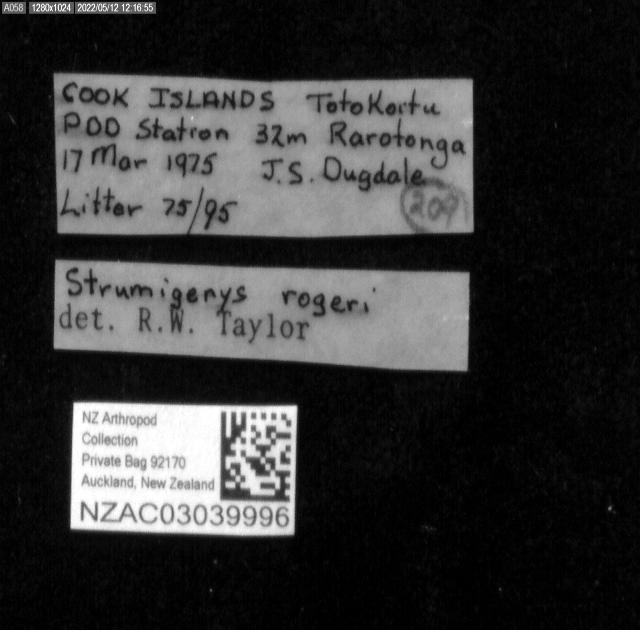 A058 1280x1024 2022/05/12 12:16:55
COOK ISLANDS TotoKoitu
POD Station 32m Rarotonga
17 Mar 1975 J.S. Dugdale
Litter 75/95 209
Strumigenys rogeri
det. R.W. Taylor
NZ Arthropod
Collection
Private Bag 92170
Auckland, New Zealand
NZAC03039996